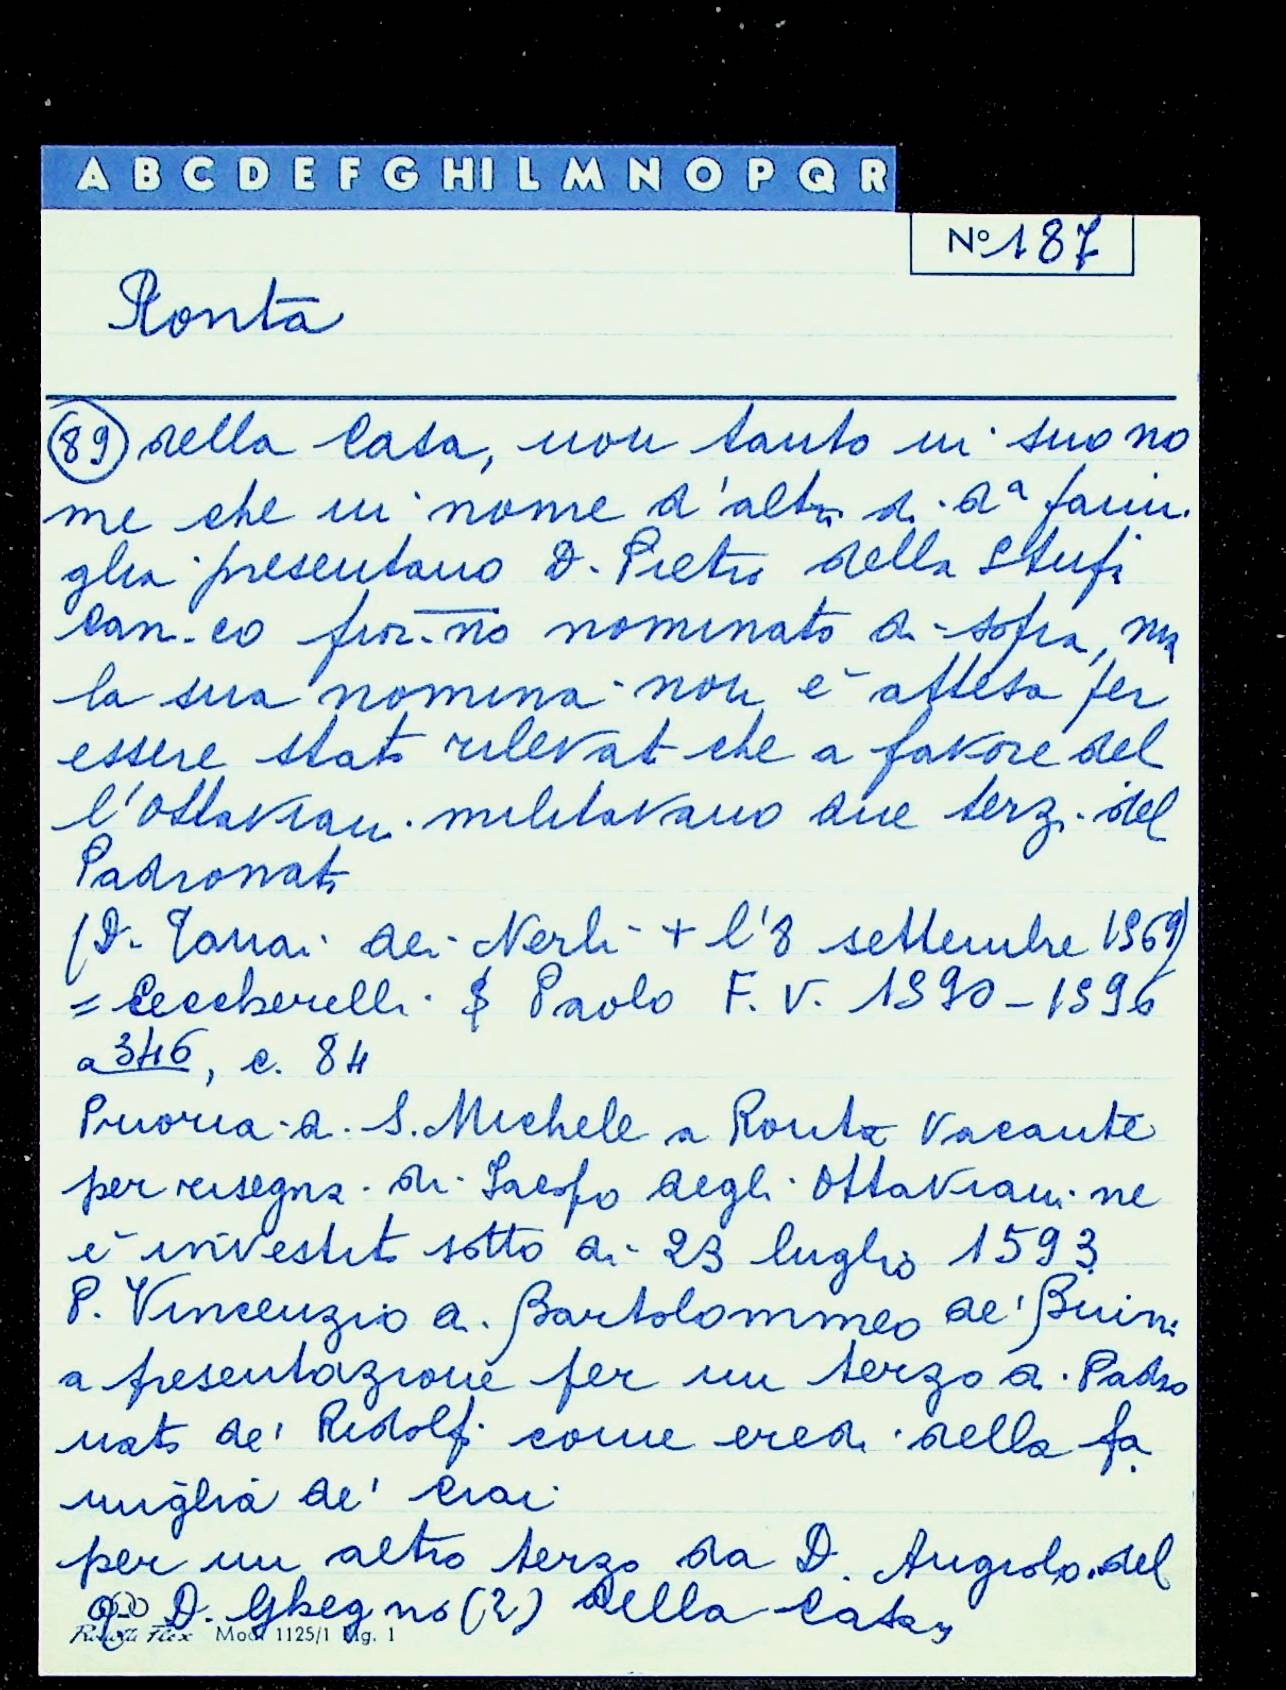 A B C D E F G HI L M N O P Q R
Nº 187
Ronta
89 della Casa, non tanto in suo no
me che in nome d'altri di dª fami.
glia presentano D. Pietro della Stufa
Can.co fior.no nominato di sopra, ma
la sua nomina non è attesa per
essere stato rilevato che a favore del
l'Ottaviani militavano due terzi del
Padronato
(D. Tanai dei Nerli + l'8 settembre 1569)
= Ceccherelli Paolo F. V. 1590-1596
a 346, c. 84
Prioria di S. Michele a Ronta vacante
per risegna di Iacopo degli Ottaviani ne
è investito sotto di 23 luglio 1593
P. Vincenzio di Bartolommeo de'
a presentazione per un terzo di Padro
nato de' Ridolfi come eredi della fa
miglia de' Ciai
per un altro terzo da D. Angiolo del
D. (?) della Casa,
Mod. 1125/1 Rig. 1